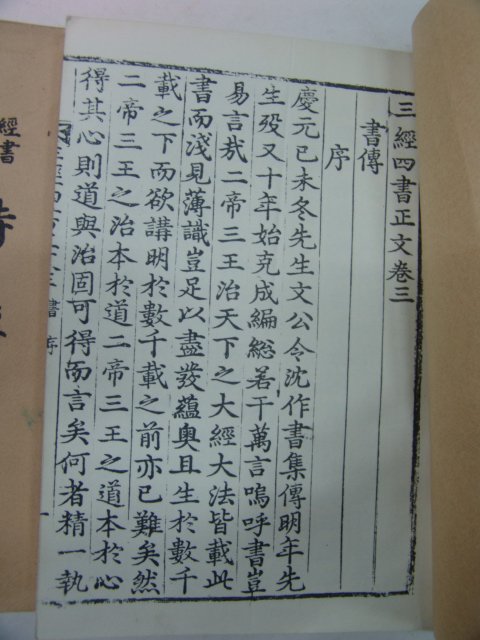 三經四書正文卷三
書傳
序
慶元己未冬先生文公令沈作書集傳明年先
生歿又十年始克成編総若干萬言嗚呼書豈
易言㢤二帝三王治天下之大經大法皆載此
書而淺見薄識豈足以盡發蘊奧且生於數千
載之下而欲講明於數千載之前亦已難矣然
二帝三王之治本於道二帝三王之道本於心
得其心則道與治固可得而言矣何者精一執
書序
經書